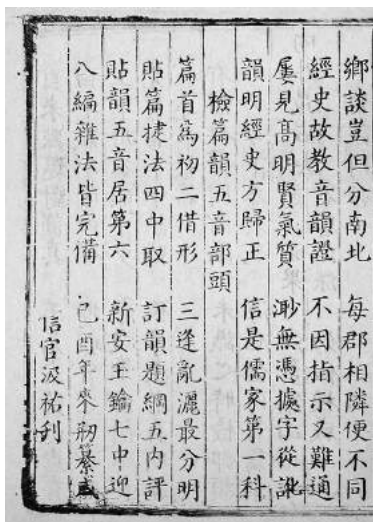 鄉談豈但分南北 每郡相隣便不同
經史故教音韻證 不因指示又難通
屢見髙明賢氣質 渺無憑㨿字從訛
韻明經史方歸正 信是儒家第一科
檢篇韻五音部頭
篇首爲初二借形 三逢亂灑最分明
貼篇㨗法四中取 訂韻題綱五内評
貼韻五音居第六 新安玉鑰七中迎
八編雜法皆完備 己酉年來刱纂成
信官汲祐刋